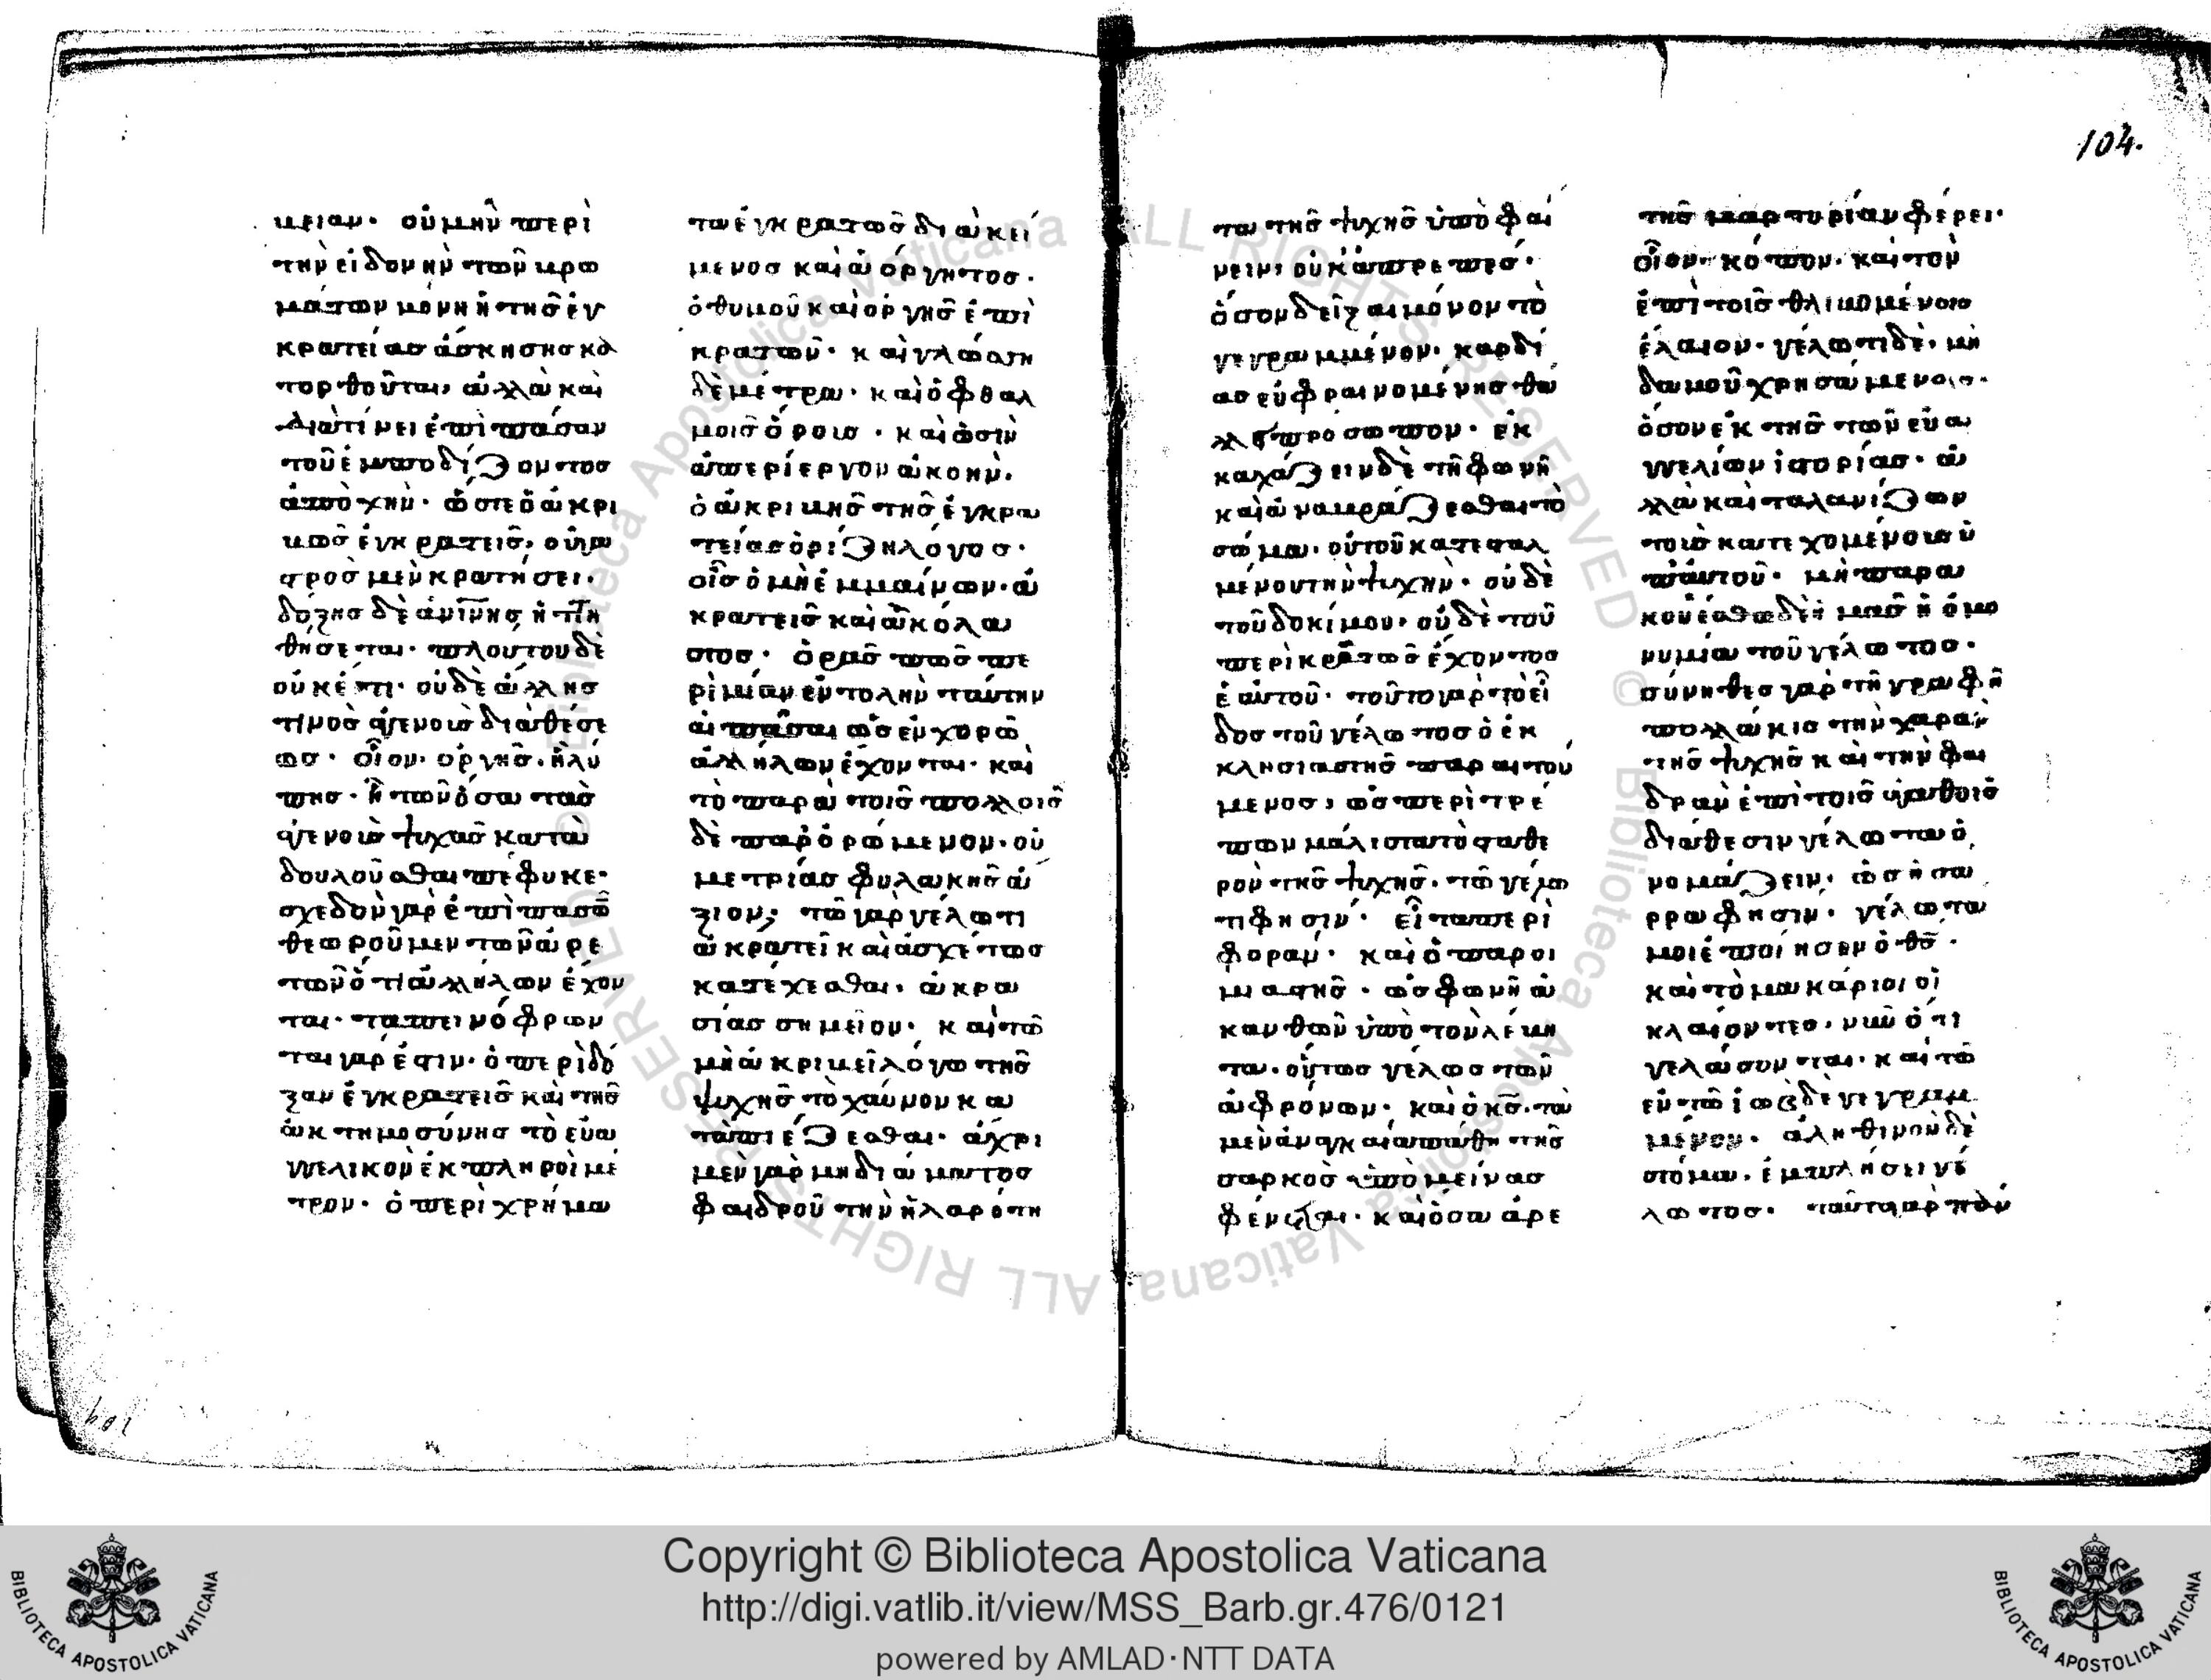 μειαν· οὐ μὴν περὶ
τὴν εἰδονὴν τῶν βρω
μάτων μόνη ἡ τῆς ἐγ
κρατείας ἄσκησις κα
τορθοῦται, ἀλλὰ καὶ
διατίνει ἐπὶ πᾶσαν
τοῦ ἐμποδίζοντος
ἀποχήν· ὥστε ὁ ἀκρι
βῶς ἐγκρατεὶς, οὐ γα
στρὸς μὲν κρατήσει·
δόξης δὲ ἀνίνης ἡττη
θήσεται· πλούτου δὲ
οὐκέτι· οὐδὲ ἄλλης
τινὸς ἀγενοῦς διαθέσε
ως· οἷον· ὀργῆς· ἢ λύ
πης· ἢ τῶν ὅσα τὰς
ἀγενοὺς ψυχὰς κατα
δουλοῦσθαι πέφυκε·
σχεδὸν γὰρ ἐπὶ πασῶ
θεωροῦμεν τῶν ἀρε
τῶν ὅτι ἀλλήλων ἔχον
ται· ταπεινόφρων
ται γὰρ ἔστιν· ὁ περὶ δό
ξαν ἐγκρατεὶς καὶ τῆς
ἀκτημοσύνης τὸ εὐα
γγελικὸν ἐκπληροῖ μέ
τρον· ὁ περὶ χρήμα
τα ἐγκρατῶς διακεί
μενος καὶ ἀόργητος·
ὁ θυμοῦ καὶ ὀργῆς ἐπι
κρατῶν· καὶ γλώσση
δὲ μέτρα· καὶ ὀφθαλ
μοῖς ὅροις· καὶ ὠσὶν
ἀπερίεργον ἀκοήν·
ὁ ἀκριβὴς τῆς ἐγκρα
τείας ὁρίζη λόγος·
οἷς ὁ μὴ ἐμμαίνων· ἀ
κρατεὶς καὶ ἀκόλα
στος· ὁρᾶς πῶς πε
ρὶ μίαν ἐντολὴν ταύτην
αἱ πᾶσαι ὡς ἐν χορῶ
ἀλλήλων ἔχονται· καὶ
τὸ παρὰ τοῖς πολλοῖς
δὲ παρορώμενον· οὐ
μετρίας φυλακῆς ἄ
ξιον; τῶ γὰρ γέλωτι
ἀκρατεῖ καὶ ἀσχέτως
κατέχεσθαι· ἀκρα
σίας σημεῖον· καὶ τῶ
μὴ ἀκριβεῖ λόγω τῆς
ψυχῆς τὸ χαῦνον κα
ταπιέζεσθαι· ἄχρι
μὲν γὰρ μηδιάματος
φαιδροῦ τὴν ἱλαρότη
τα τῆς ψυχῆς ὑποφαί
νειν, οὐκ ἀπρεπές·
ὅσον δεῖξαι μόνον τὸ
γεγραμμένον· καρδί
ας εὐφραινομένης θά
λλει πρόσωπον· ἐκ
καχάζειν δὲ τῆ φωνῆ
καὶ ἀναβράζεσθαι τὸ
σῶμα· οὐ τοῦ κατεσταλ
μένου τὴν ψυχήν· οὐδὲ
τοῦ δοκίμου· οὐδὲ τοῦ
περικρατῶς ἔχοντος
ἑαυτοῦ· τοῦτο γὰρ τὸ εἶ
δος τοῦ γέλωτος ὁ ἐκ
κλησιαστὴς παραιτού
μενος, ὡς περιτρέ
πων μάλιστα τὸ σταθε
ρὸν τῆς ψυχῆς· τῶ γέλω
τι φησίν· εἶπα περι
φοράν· καὶ ὁ παροι
μιαστὴς· ὡς φωνὴ ἀ
κανθῶν ὑπὸ τὸν λέβη
τα· οὕτως γέλως τῶν
ἀφρόνων· καὶ ὁ κς· τὰ
μὲν ἀναγκαῖα πάθη τῆς
σαρκὸς ὑπομείνας
φένεται· καὶ ὅσα ἀρε
τῆς μαρτυρίαν φέρει·
οἷον· κόπον· καὶ τὸν
ἐπὶ τοῖς θλιβομένοις
ἔλαιον· γέλωτι δὲ· μη
δαμοῦ χρησάμενος·
ὅσον ἐκ τῆς τῶν εὐα
γγελίων ἱστορίας· ἀ
λλὰ καὶ ταλανίζων
τοὺς κατεχομένους ὑ
π' αὐτοῦ· μὴ παρα
κουέσθω δὲ ἡμᾶς ἡ ὁμο
νυμία τοῦ γέλωτος·
σύνηθες γὰρ τῆ γραφῆ
πολλάκις τὴν χαρὰν
τῆς ψυχῆς καὶ τὴν φαι
δρὰν ἐπὶ τοῖς ἀγαθοῖς
διάθεσιν γέλωτα ὀ
νομάζειν· ὡς ἡ σά
ρρα φησιν· γέλωτα
μοι ἐποίησεν ὁ θς·
καὶ τὸ μακάριοι οἱ
κλαίοντες· νῦν ὅτι
γελάσονται· καὶ τῶ
ἐν τῶ ἰὼβ δὲ γεγραμ
μένον· ἀληθινὸν δὲ
στόμα· ἐμπλήσει γέ
λωτος· ταῦτα γὰρ πάν
104.
Copyright © Biblioteca Apostolica Vaticana
http://digi.vatlib.it/view/MSS_Barb.gr.476/0121
powered by AMLAD·NTT DATA
BIBLIOTECA APOSTOLICA VATICANA
BIBLIOTECA APOSTOLICA VATICANA